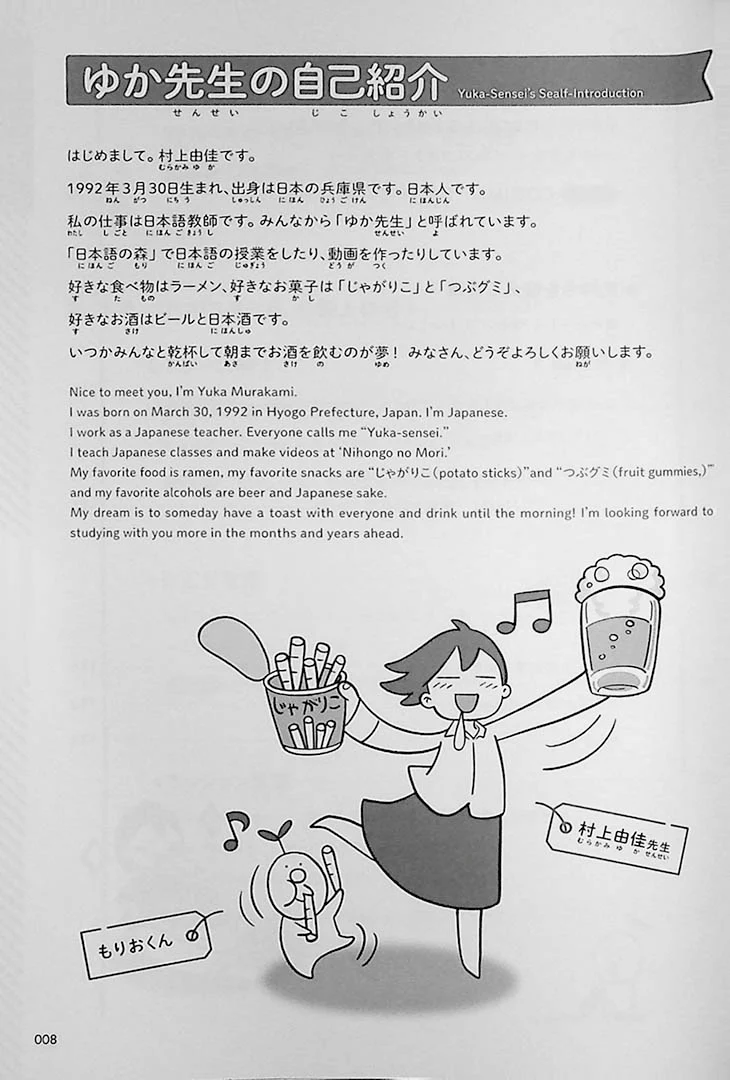 ゆか先生の自己紹介 Yuka-Sensei's Sealf-Introduction
せんせい じこ しょうかい
はじめまして。村上由佳です。
むらかみ ゆ か
1992年3月30日生まれ、出身は日本の兵庫県です。日本人です。
ねん がつ にち う しゅっしん にほん ひょうごけん にほんじん
私の仕事は日本語教師です。みんなから「ゆか先生」と呼ばれています。
わたし しごと にほんごきょうし せんせい よ
「日本語の森」で日本語の授業をしたり、動画を作ったりしています。
にほんご もり にほんご じゅぎょう どうが つく
好きな食べ物はラーメン、好きなお菓子は「じゃがりこ」と「つぶグミ」、
す た もの す かし
好きなお酒はビールと日本酒です。
す さけ にほんしゅ
いつかみんなと乾杯して朝までお酒を飲むのが夢! みなさん、どうぞよろしくお願いします。
かんぱい あさ さけ の ゆめ ねが
Nice to meet you, I'm Yuka Murakami.
I was born on March 30, 1992 in Hyogo Prefecture, Japan. I'm Japanese.
I work as a Japanese teacher. Everyone calls me “Yuka-sensei.”
I teach Japanese classes and make videos at ‘Nihongo no Mori.’
My favorite food is ramen, my favorite snacks are “じゃがりこ(potato sticks)”and “つぶグミ(fruit gummies,)”
and my favorite alcohols are beer and Japanese sake.
My dream is to someday have a toast with everyone and drink until the morning! I'm looking forward to
studying with you more in the months and years ahead.
じゃがりこ
村上由佳先生
むらかみ ゆ か せんせい
もりおくん
008